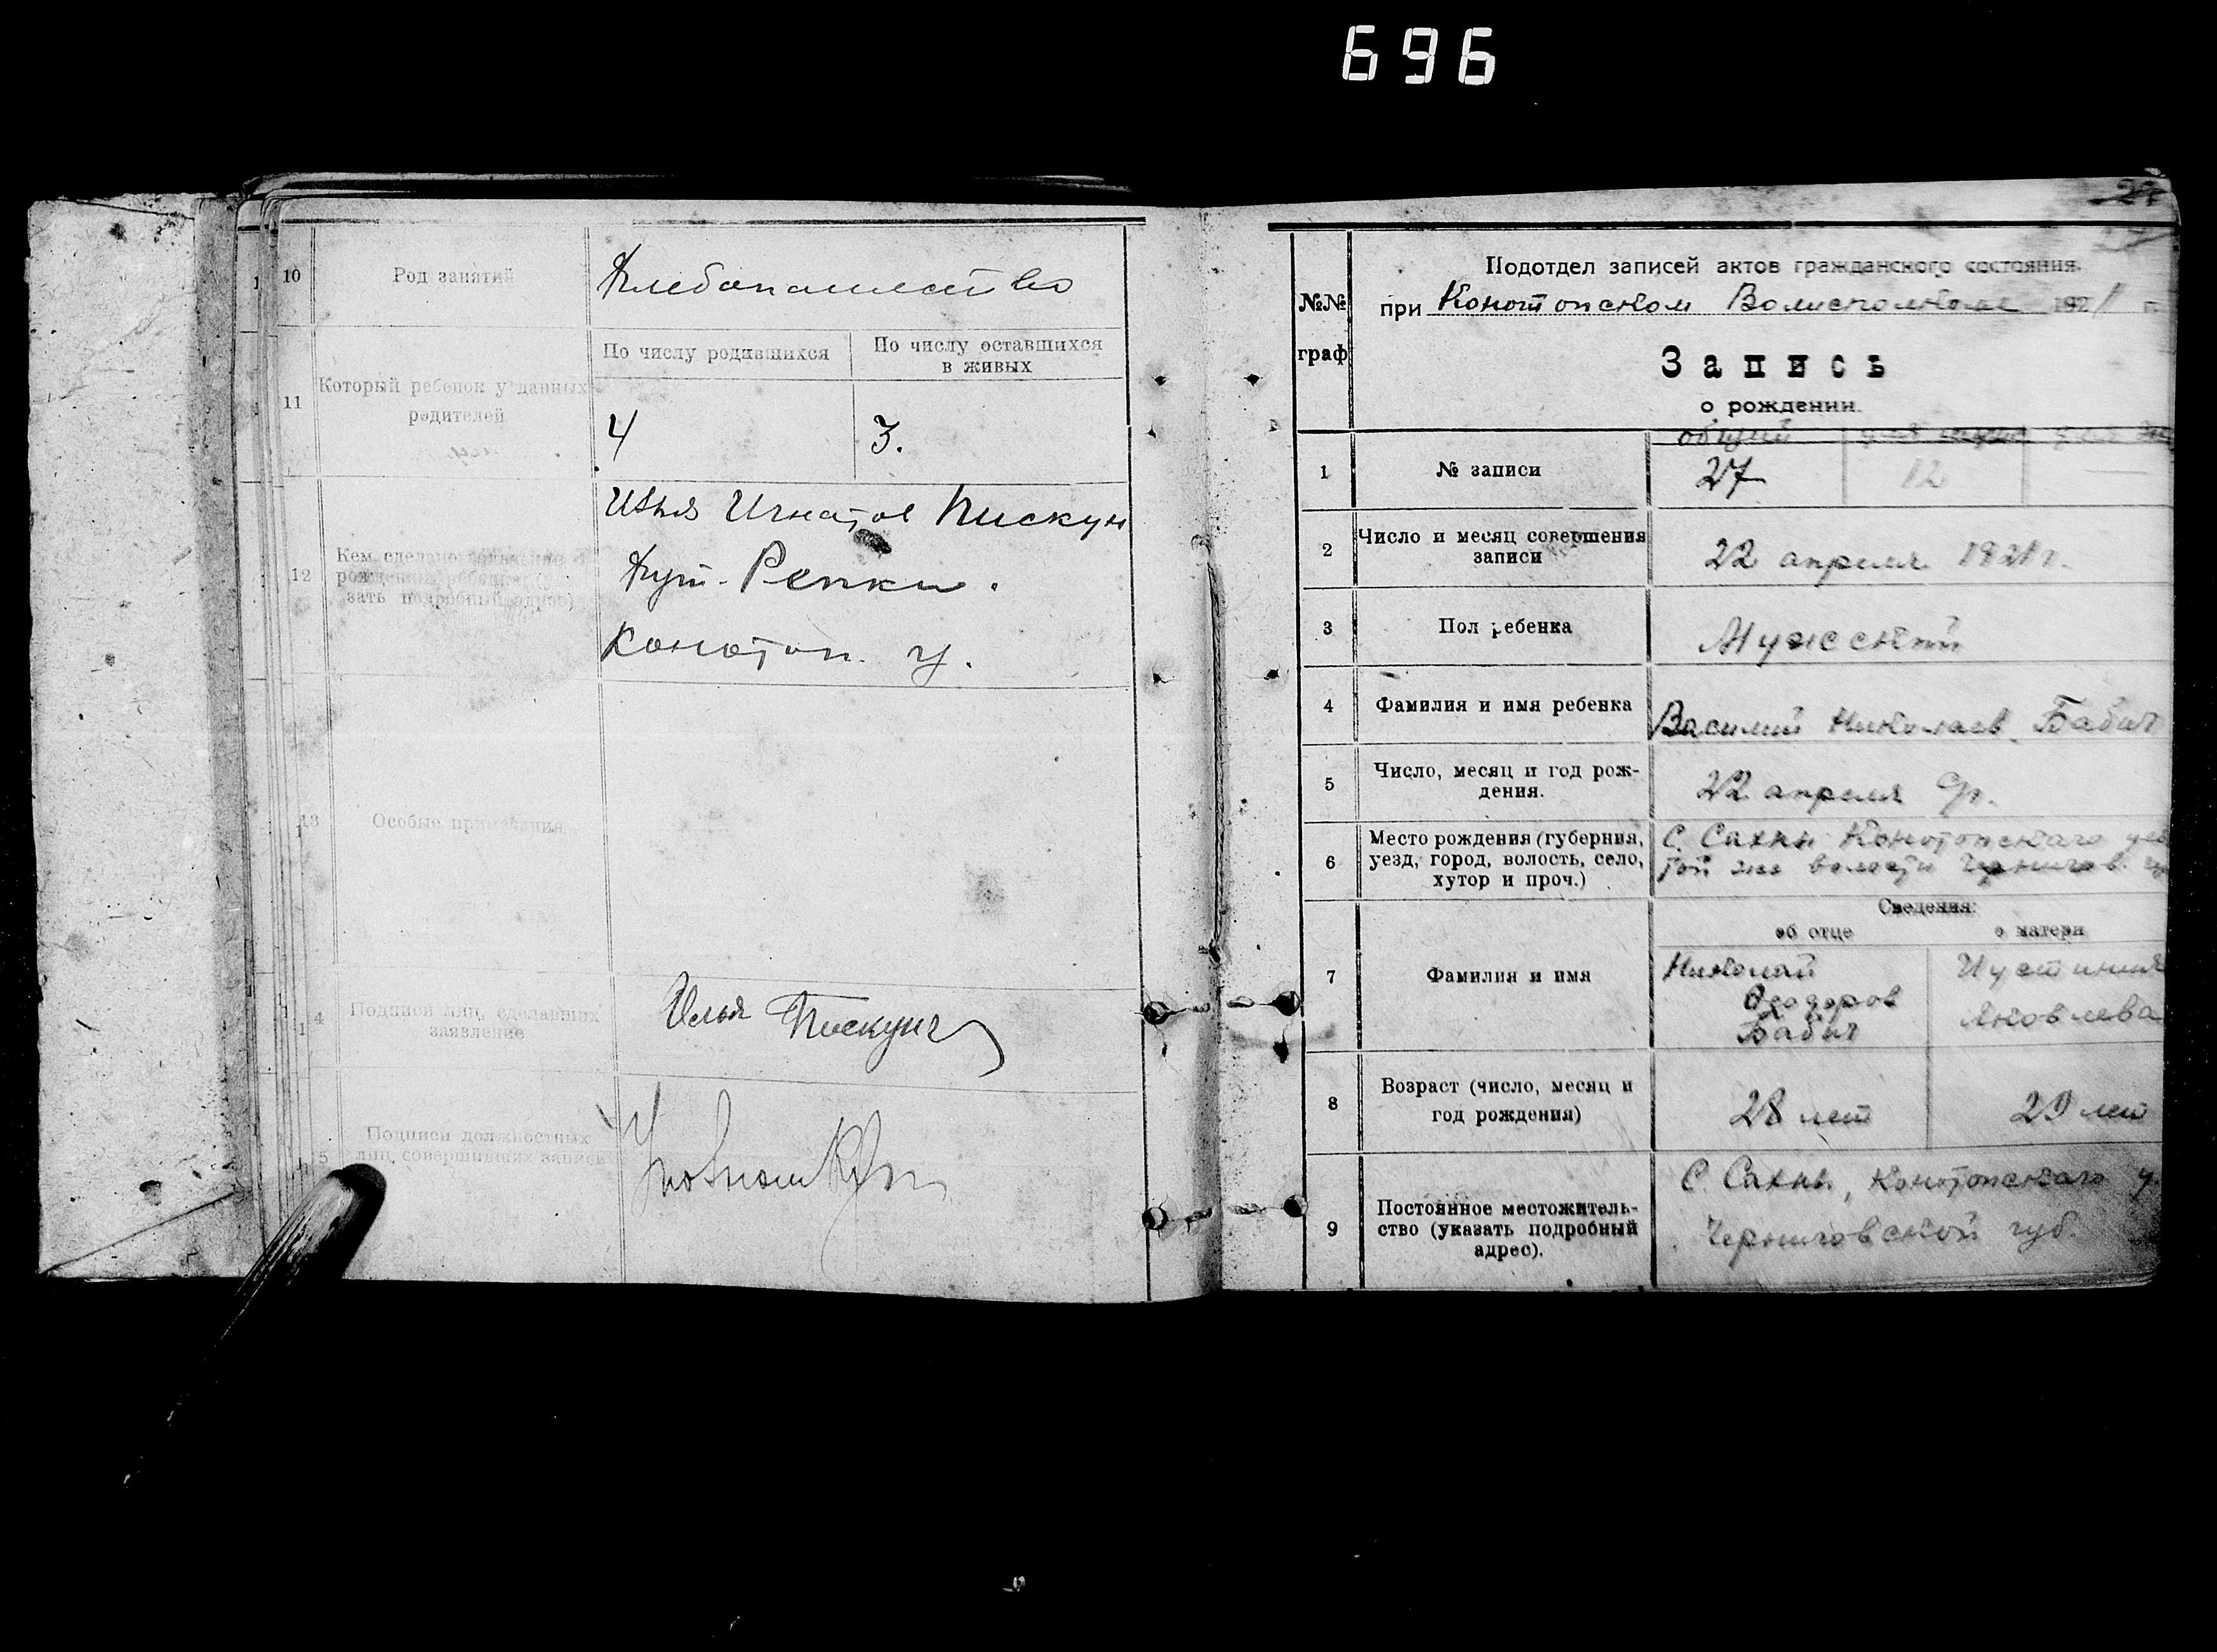 696
10
Род занятий
Хлебопашество
11
Который ребенок у данных
родителей
По числу родившихся
По числу оставшихся
в живых
4
3.
12
Кем сделано
зать подробный адрес)
Илья Игнатов Пискун
Хут. Репки.
Конотоп. у.
13
Особые примечания
14
Подписи лиц, сделавших
заявление
Илья Пискунъ
15
Подписи должностных
лиц, совершивших запись
27
№№
граф
Подотдел записей актов гражданского состояния.
при Конотопском Волисполкоме 1921 г.
Запись
о рождении.
общий
1
№ записи
27
12
—
2
Число и месяц совершения
записи
22 апреля 1921 г.
3
Пол ребенка
Мужской
4
Фамилия и имя ребенка
Василий Николаев Бабич
5
Число, месяц и год рож-
дения.
22 апреля
6
Место рождения (губерния,
уезд, город, волость, село,
хутор и проч.)
С. Сахны Конотопскаго уез
той же волости Чернигов.
Сведения:
об отце
о матери
7
Фамилия и имя
Николай
Феодоров
Бабич
Иустиния
Яковлева
8
Возраст (число, месяц и
год рождения)
28 лет
29 лет
9
Постоянное местожитель-
ство (указать подробный
адрес).
С. Сахны, Конотопскаго у.
Черниговской губ.